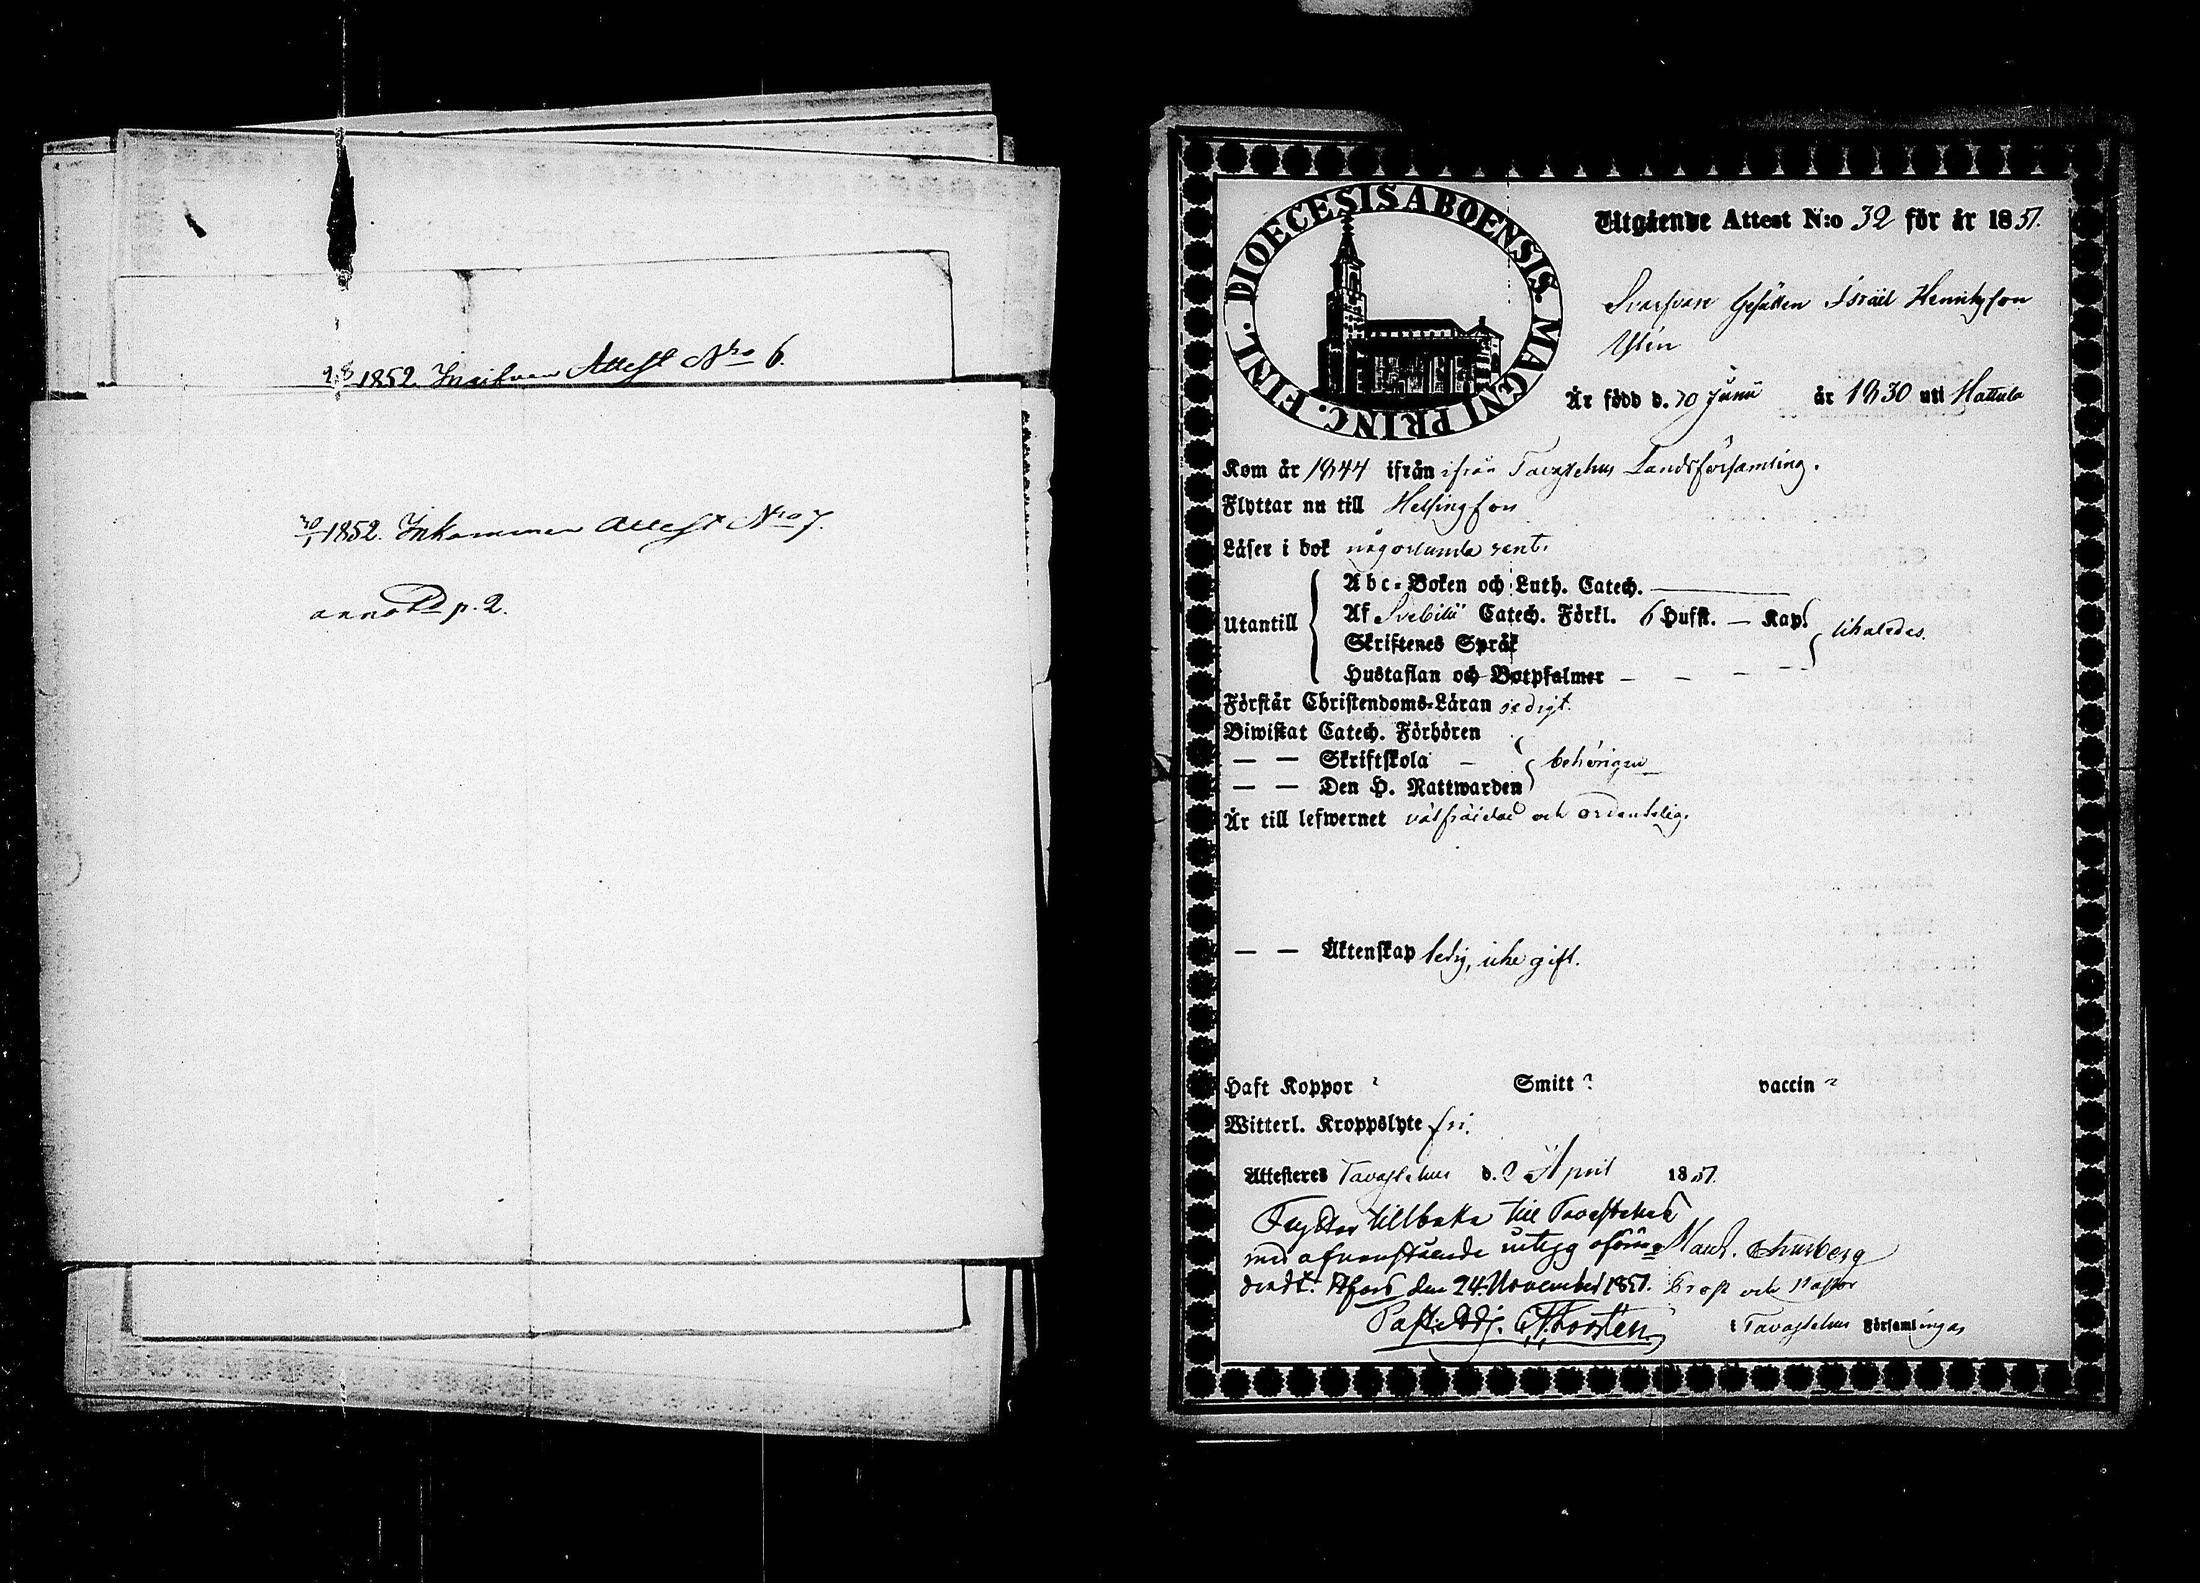 28/1 1852. Attest Nro 6.
20/1 1852. Inkommen Attest Nro 7.
annotd p. 2.
DIOECESIS ABOENSIS. MAGNI PRINC. FINL.
Utgående Attest N:o 32 för år 1851.
Svarfvare Gesällen Israël Henriksson
Är född d. 10 Junii år 1830 uti Hattula
Kom år 1844 ifrån ifrån Tavastehus Landsförsamling.
Flyttar nu till Helsingfors
Läser i bok någorlunda rent.
Utantill
Abc-Boken och Luth. Catech.
Af Svebilii Catech. Förkl. 6 Hufst. — Kap.
Skriftenes Språk
Hustaflan och Botpsalmer — — — —
likaledes.
Förstår Christendoms-Läran redigt.
Biwistat Catech. Förhören
— — Skriftskola —
— — Den H. Nattwarden
behörigen
Är till lefwernet välfräjdad och ordentelig.
— — Äktenskap ledig, icke gift.
Haft Koppor ? Smitt ? vaccin ?
Witterl. Kroppslyte fri.
Attesteres Tavastehus d. 2 April 1851.
Flyttar tillbaka till Tavastehus
med ofvanstående intyg oförän-
dradt. H:fors den 24 November 1851.
Past. Adj.
Churberg
Prost och Pastor
i Tavastehus Församlingar